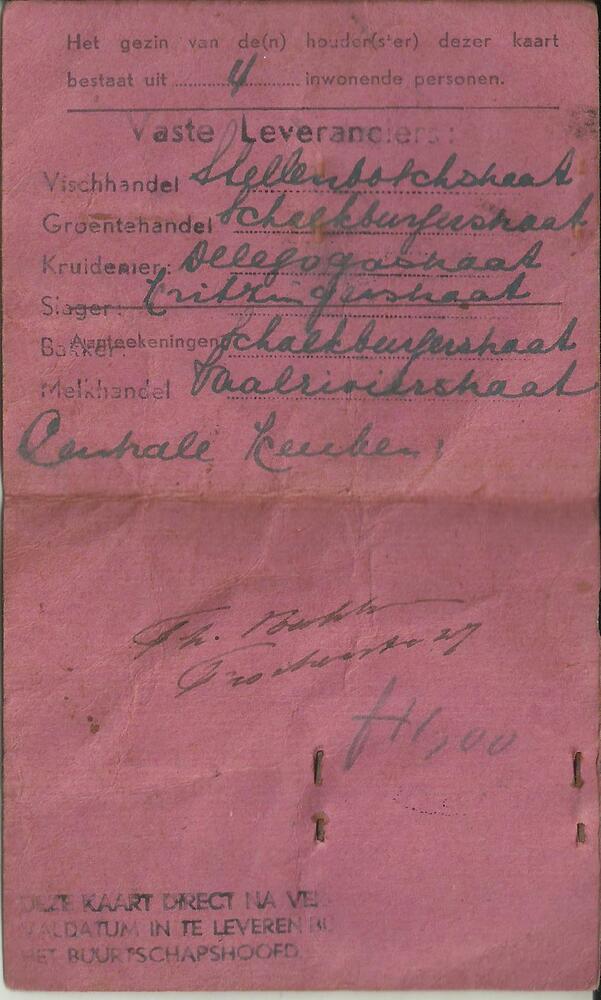 Het gezin van de(n) houder(s'er) dezer kaart
bestaat uit 4 inwonende personen.
Vaste Leveranciers:
Vischhandel Stellenboschstraat
Groentehandel Schalkburgerstraat
Kruidenier: Delegogastraat
Slager: Kritzingerstraat
Aanteekeningen
Bakker: Schalkburgerstraat
Melkhandel Vaalrivierstraat
Centrale Keuken:
Th.
27
f 11,00
DEZE KAART DIRECT NA VER
VALDATUM IN TE LEVEREN BIJ
HET BUURTSCHAPSHOOFD.